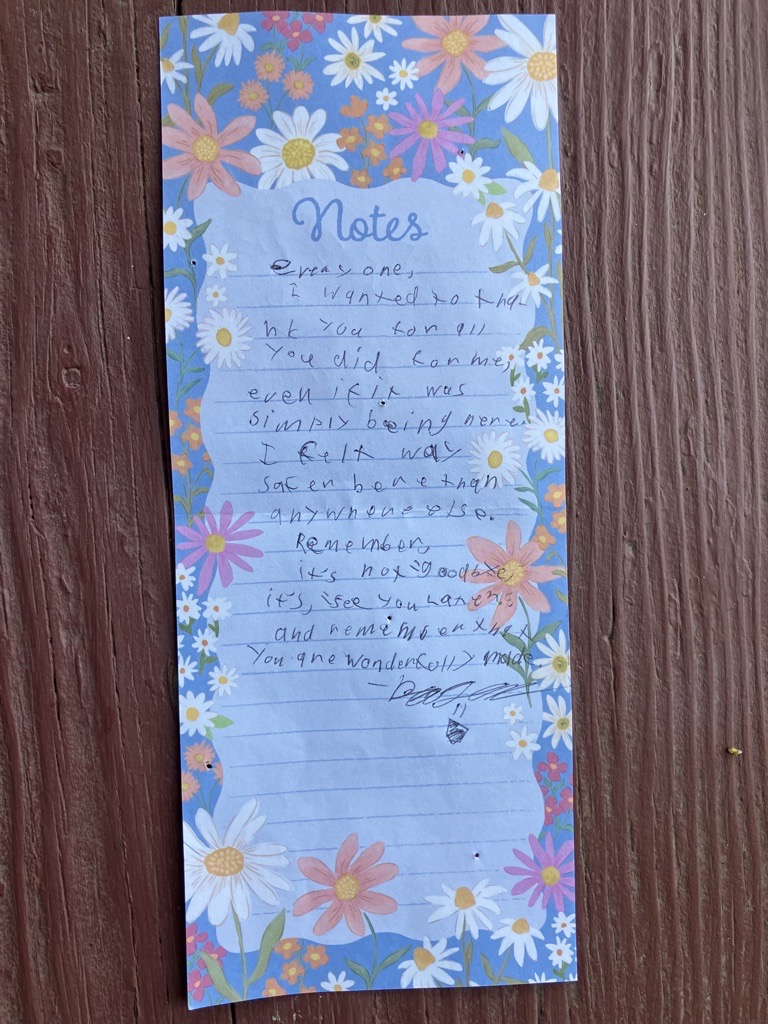 Notes
everyone,
I wanted to tha-
nk you for all
you did for me,
even if it was
simply being here.
I felt way
safer here than
anywhere else.
Remember,
it's not "goodbye,
it's, "see you later."
and remember that
you are wonderfully made.